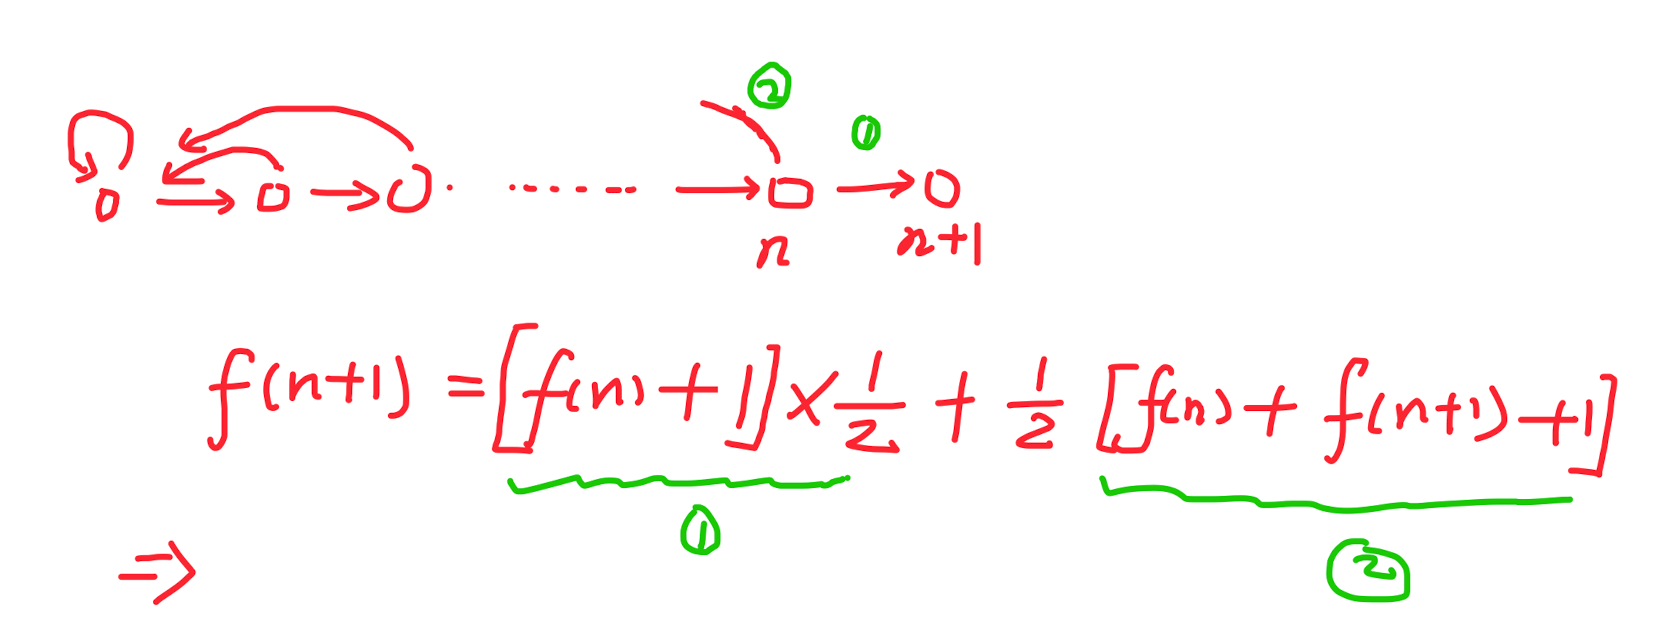 ② ①
n n+1
f(n+1) = [f(n)+1] × 1/2 + 1/2 [f(n) + f(n+1) + 1]
① ②
⇒